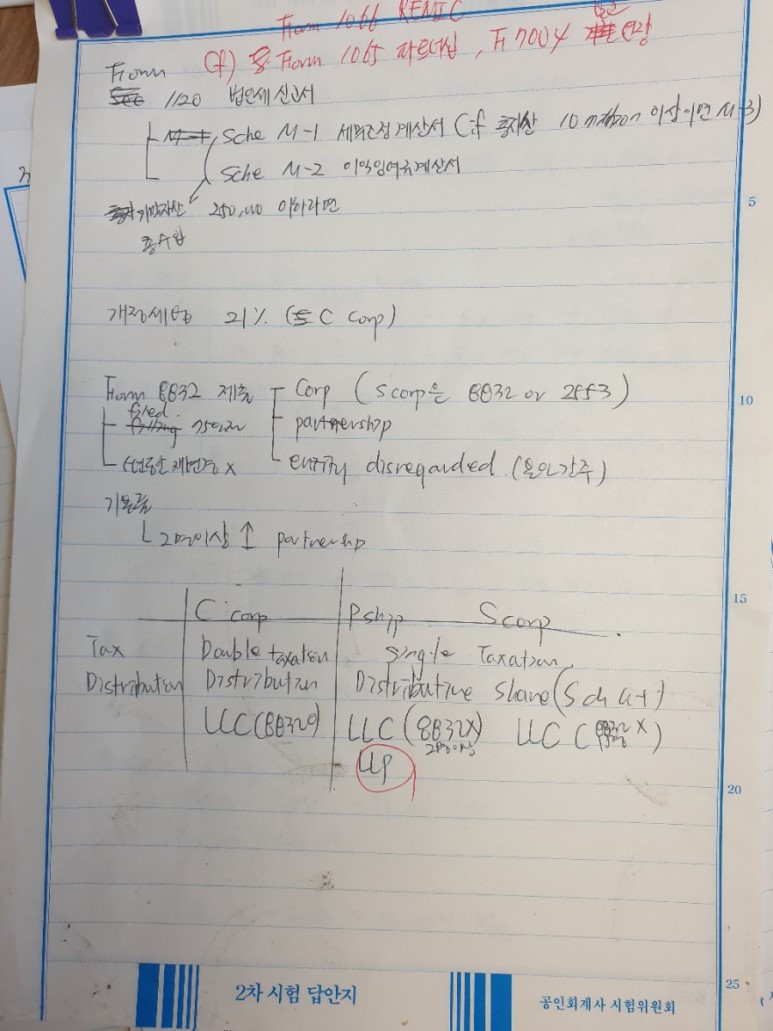 Form 1066 REMIC
cf) Form 1065 파트너십, F 7004 연장
Form
1120 법인세신고서
Sche M-1 세무조정계산서 (if 총자산 10 million 이상이면 M-3)
Sche M-2 이익잉여금계산서
기말자산 250,000 이하라면
총수입
5
개정세법 21% (C Corp)
Form 8832 제출 Corp (S corp은 8832 or 2553)
10
filed 75일전 partnership
재변경 X entity disregarded (본인간주)
기본룰
2명이상 ↑ partnership
15
C corp Pship S corp
Tax Double taxation Single Taxation
Distribution Distribution Distributive Share (Sch K-1)
LLC (8832 O) LLC (8832 X) LLC (8832 X)
2명이상 1명
LLP
20
25
2차 시험 답안지
공인회계사 시험위원회